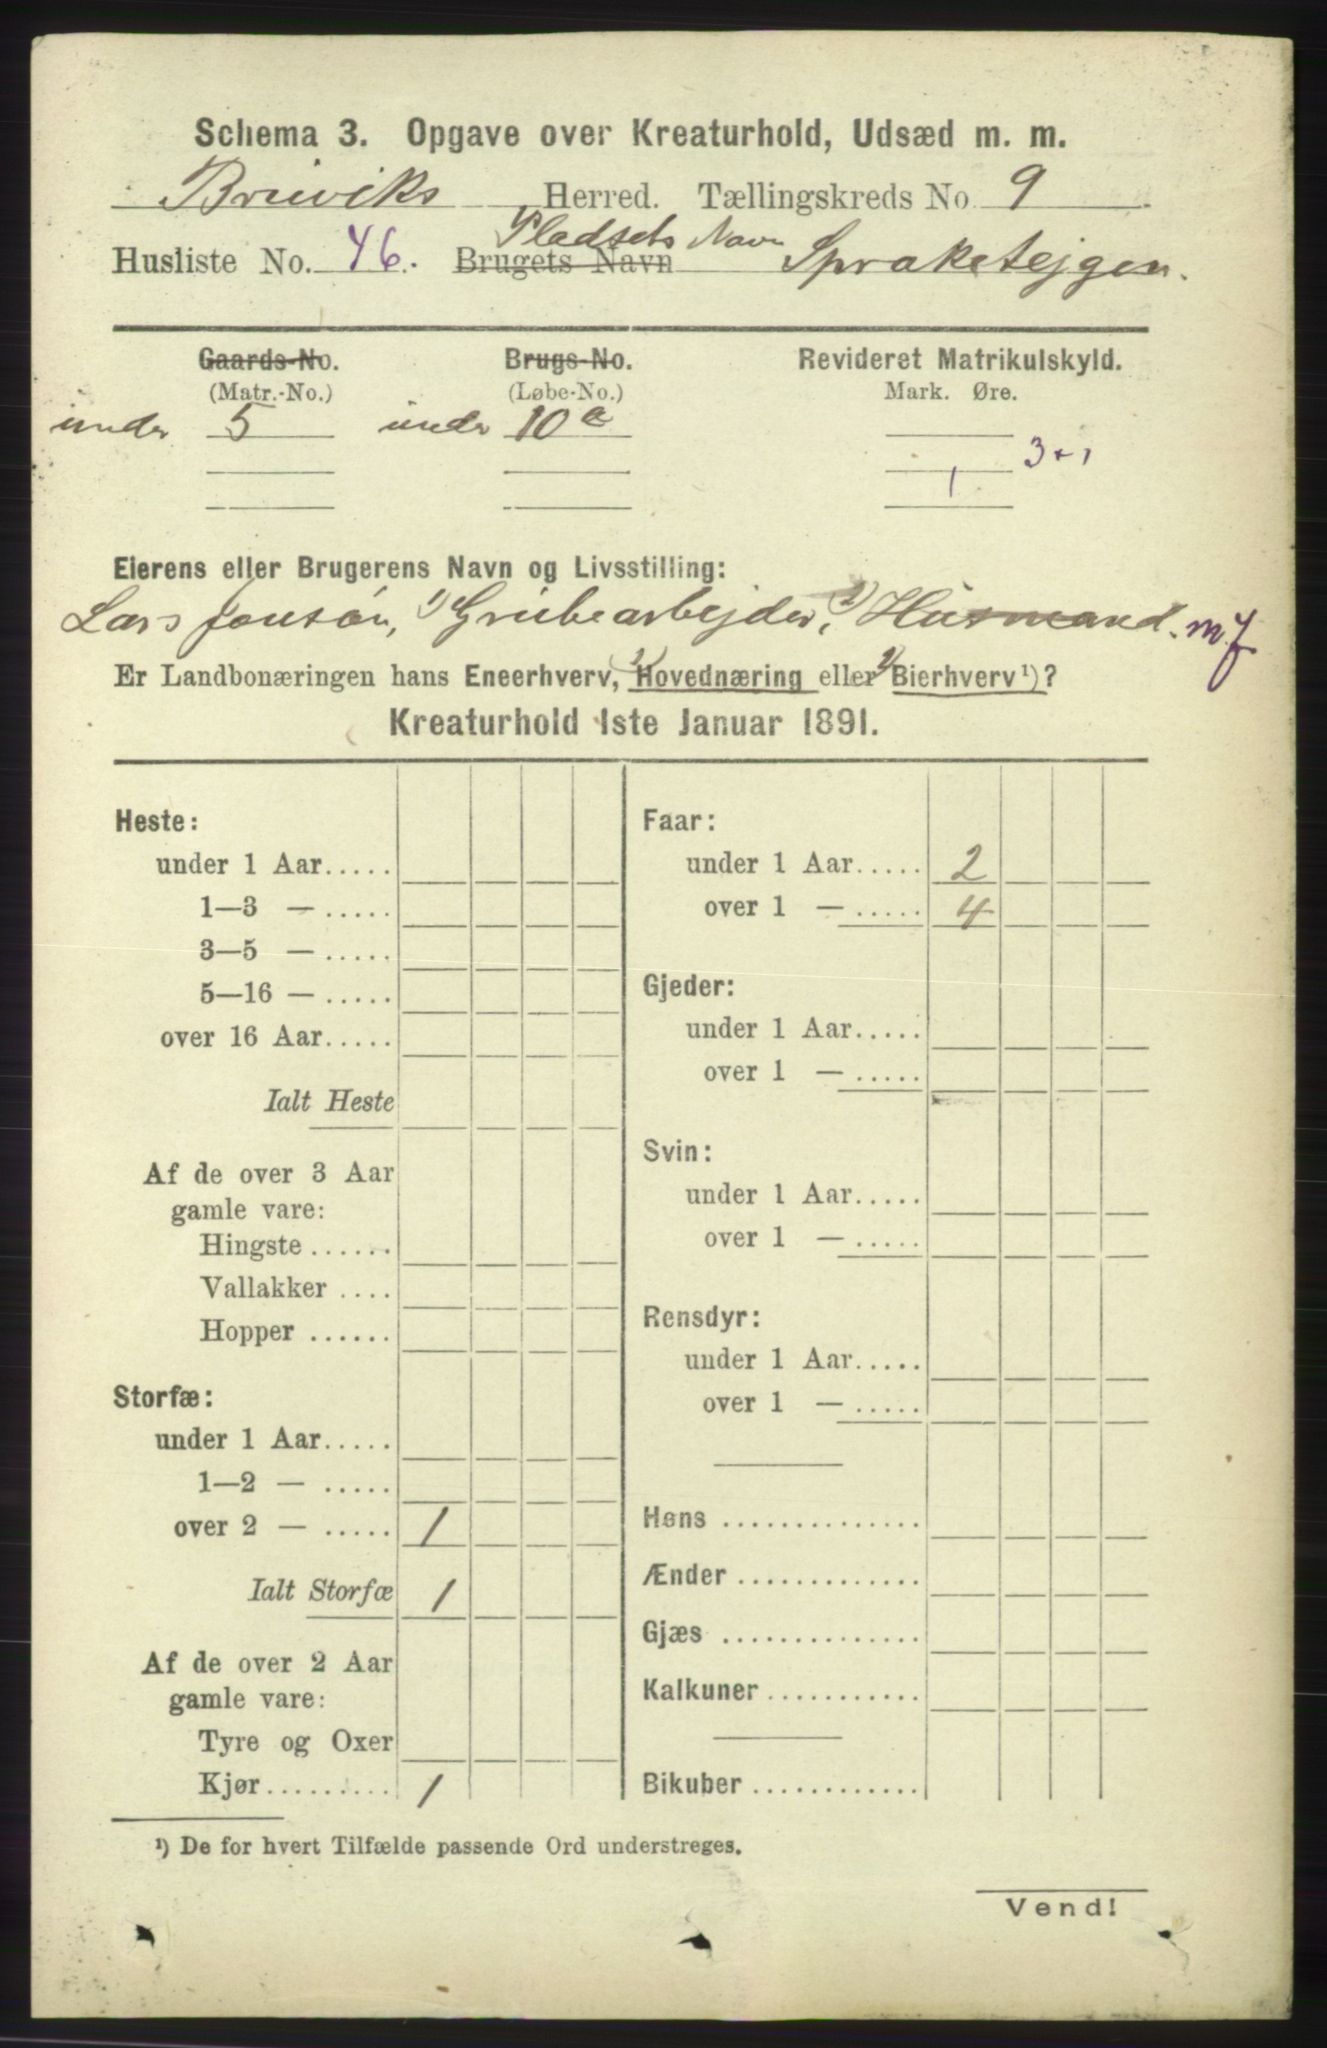 Schema 3. Opgave over Kreaturhold, Udsæd m. m.
Bruviks Herred. Tællingskreds No 9
Husliste No. 46. Brugets Navn Pladsets Navn Spraketejgen.
Gaards-No. Brugs-No. Revideret Matrikulskyld.
(Matr.-No.) (Løbe-No.) Mark. Øre.
under 5 under 10 a
3+1
1
Eierens eller Brugerens Navn og Livsstilling:
Lars Jonsøn, 1) Grubearbejder, 2) Husmand. m. j
Er Landbonæringen hans Eneerhverv, 1) Hovednæring eller 2) Bierhverv ¹)?
Kreaturhold 1ste Januar 1891.
Heste:
under 1 Aar.....
1—3 — .....
3—5 — .....
5—16 — .....
over 16 Aar.....
Ialt Heste
Af de over 3 Aar
gamle vare:
Hingste ......
Vallakker ....
Hopper ......
Storfæ:
under 1 Aar.....
1—2 — .....
over 2 — ..... 1
Ialt Storfæ 1
Af de over 2 Aar
gamle vare:
Tyre og Oxer
Kjør......... 1
Faar:
under 1 Aar..... 2
over 1 — ..... 4
Gjeder:
under 1 Aar.....
over 1 — .....
Svin:
under 1 Aar.....
over 1 — .....
Rensdyr:
under 1 Aar.....
over 1 — .....
Høns ..............
Ænder .............
Gjæs ..............
Kalkuner...........
Bikuber ............
¹) De for hvert Tilfælde passende Ord understreges.
Vend!